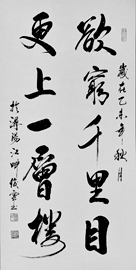 歲在乙未年秋月
欲窮千里目
更上一層樓
於潯陽江畔